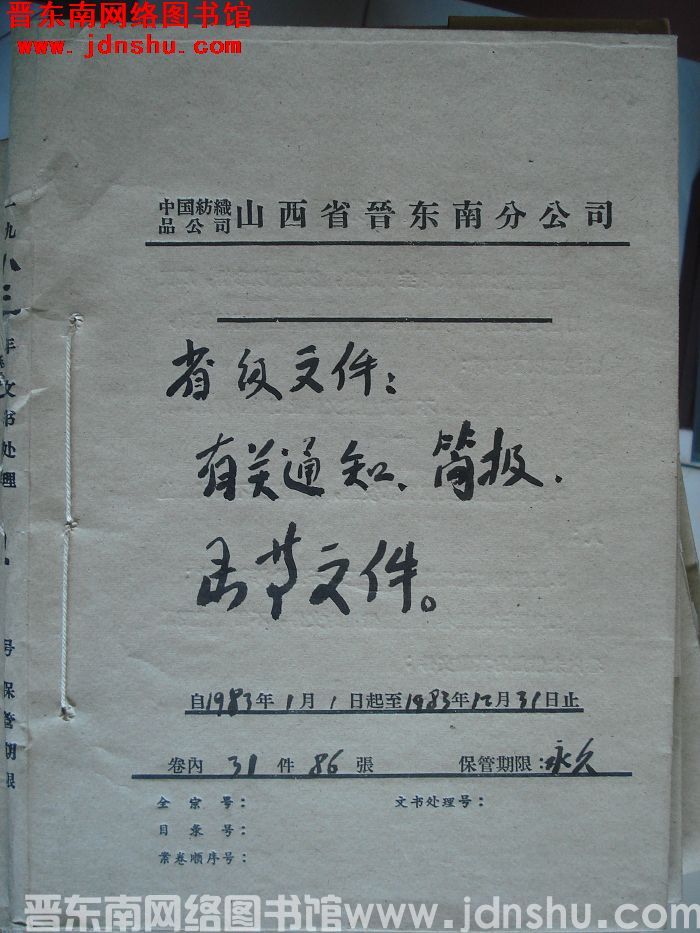 晋东南网络图书馆
www.jdnshu.com
中国紡織
品公司 山西省晉东南分公司
省级文件:
有关通知、简报.
文件。
自1983年1月1日起至1983年12月31日止
卷內 31 件 86 張 保管期限:永久
全宗号: 文书处理号:
目录号:
案卷顺序号:
一九八三年文书处理
号保管期限
晋东南网络图书馆www.jdnshu.com